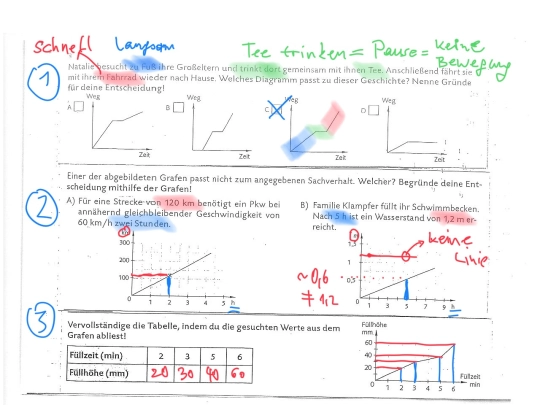 schnell Langsam Tee trinken = Pause = keine Bewegung
1
Natalie besucht zu Fuß ihre Großeltern und trinkt dort gemeinsam mit ihnen Tee. Anschließend fährt sie
mit ihrem Fahrrad wieder nach Hause. Welches Diagramm passt zu dieser Geschichte? Nenne Gründe
für deine Entscheidung!
A Weg B Weg C Weg D Weg
Zeit Zeit Zeit Zeit
Einer der abgebildeten Grafen passt nicht zum angegebenen Sachverhalt. Welcher? Begründe deine Ent-
scheidung mithilfe der Grafen!
2
A) Für eine Strecke von 120 km benötigt ein Pkw bei
annähernd gleichbleibender Geschwindigkeit von
60 km/h zwei Stunden.
B) Familie Klampfer füllt ihr Schwimmbecken.
Nach 5 h ist ein Wasserstand von 1,2 m er-
reicht.
300
200
100
0 1 2 3 4 5 h
keine
Linie
1
0,5
~0,6
≠ 1,2
0 1 3 5 7 9 h
3
Vervollständige die Tabelle, indem du die gesuchten Werte aus dem
Grafen abliest!
Füllzeit (min) 2 3 5 6
Füllhöhe (mm) 20 30 40 60
Füllhöhe
mm
60
40
20
0 1 2 3 4 5 6
Füllzeit
min